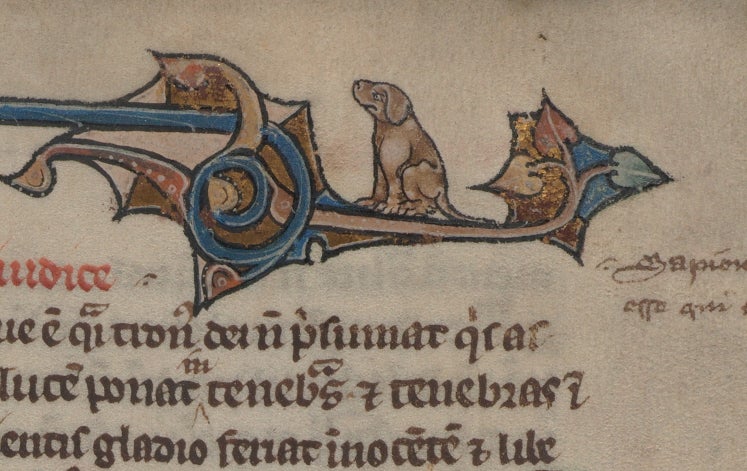 iudice
ue ē q̄i tronꝰ dei ñ p̄sumat q̇s as
lucē ponat in tenebᷓs ⁊ tenebras ī
entis gladio feriat īnocētē ⁊ libe
Sapien
esse qui